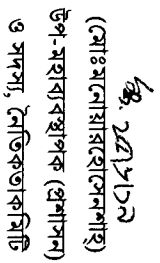 (মোঃ মনোয়ার হোসেন শাহ্)
উপ-মহাব্যবস্থাপক (প্রশাসন)
ও সদস্য, নৈতিকতা কমিটি